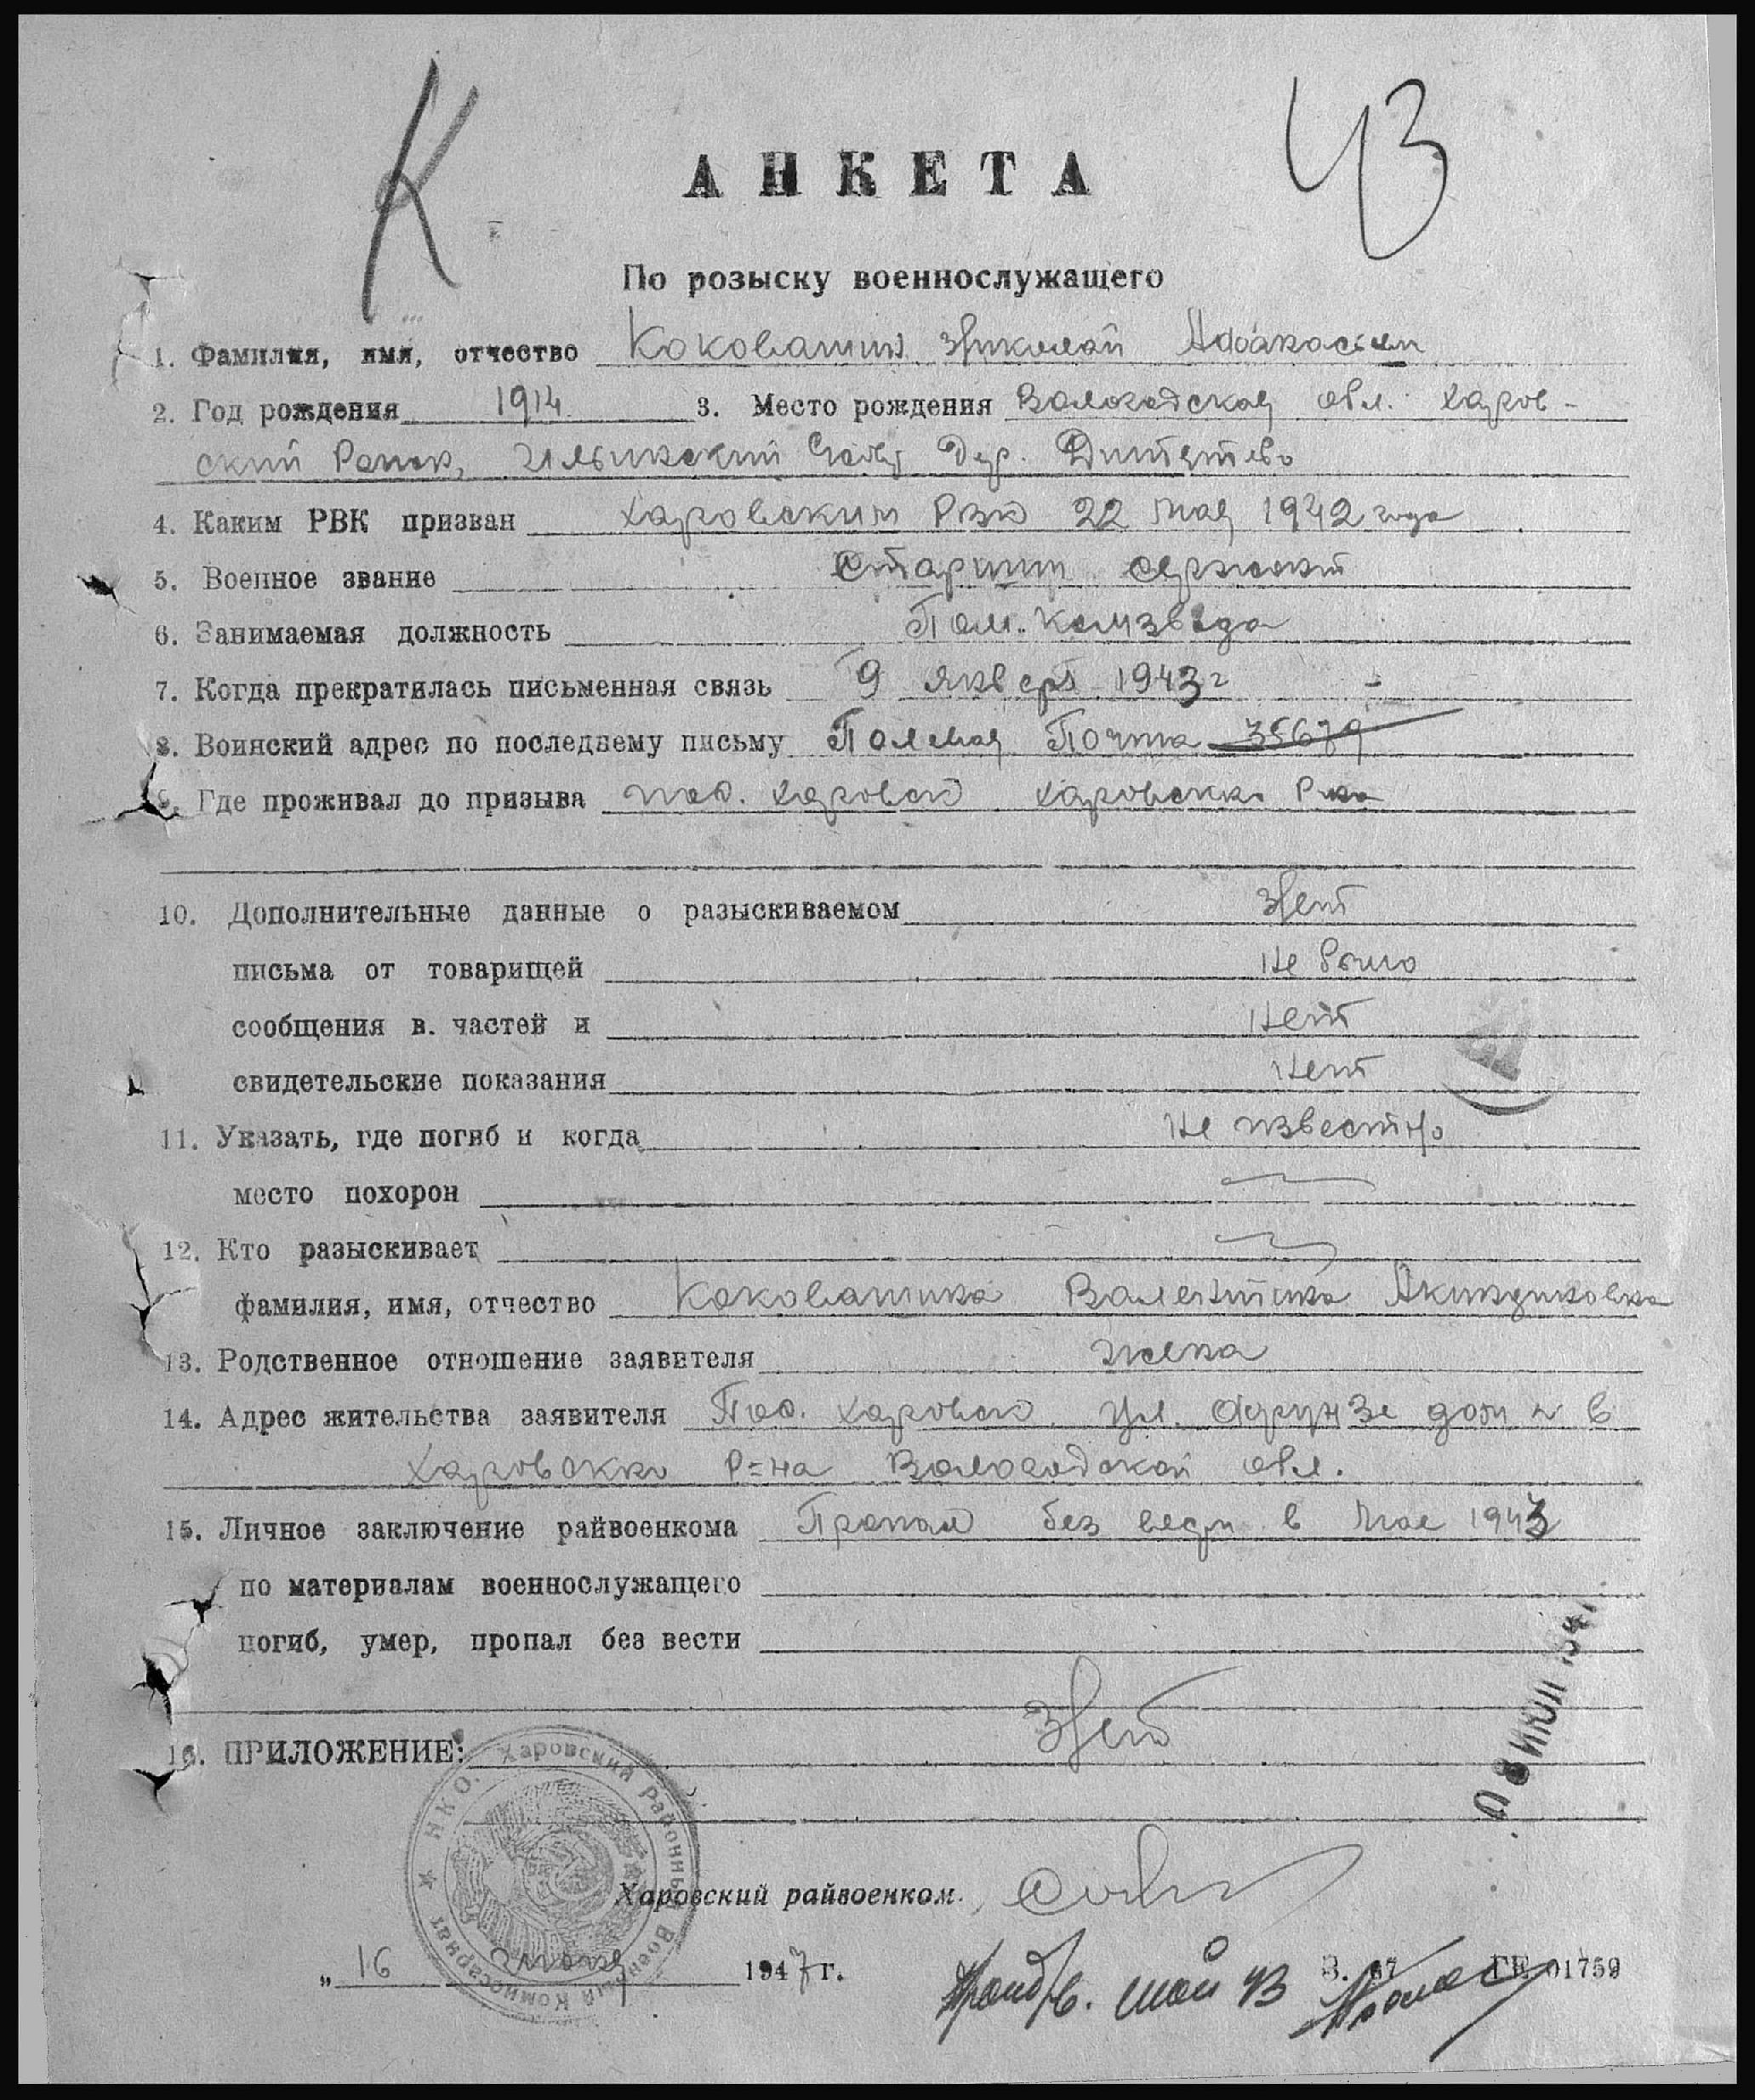 К
43
АНКЕТА
По розыску военнослужащего
1. Фамилия, имя, отчество Кокованин Николай Афанасьев
2. Год рождения 1914 3. Место рождения Вологодская обл. Харов-
ский Район, Ильинский дер. Дитятево
4. Каким РВК призван Харовским РВК 22 мая 1942 года
5. Военное звание Старший сержант
6. Занимаемая должность Пом. Комзвода
7. Когда прекратилась письменная связь 9 январь 1943 г
8. Воинский адрес по последнему письму Полевая Почта 35679
9. Где проживал до призыва пос. Харовск Харовскко Р-на
10. Дополнительные данные о разыскиваемом Нет
письма от товарищей Не было
сообщения в. частей и Нет
свидетельские показания Нет
11. Указать, где погиб и когда Не известно
место похорон
12. Кто разыскивает
фамилия, имя, отчество Кокованина Валентина Акиндиновна
13. Родственное отношение заявителя жена
14. Адрес жительства заявителя Пос. Харовск. ул. Фрунзе дом
Харовскко Р-на Вологодской обл.
15. Личное заключение райвоенкома Пропал без вести в мае 1943
по материалам военнослужащего
погиб, умер, пропал без вести
16. ПРИЛОЖЕНИЕ: Нет
НКО. Харовский Районный Военный Комиссариат
08 ИЮЛ 1947
Харовский райвоенком.
„ 16 Июня 1947 г.
май 43
З. 67 ГЕ 01759